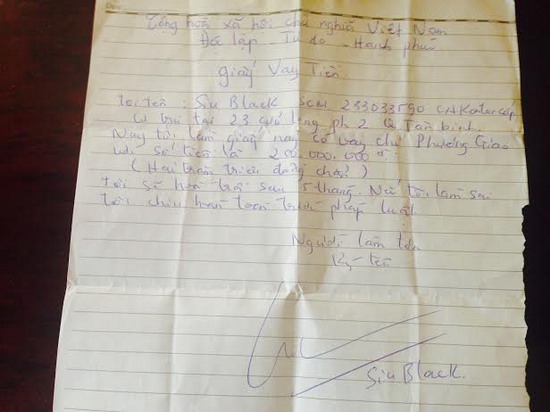 Cộng hòa xã hội chủ nghĩa Việt Nam
Độc lập - Tự do - Hạnh phúc
giấy Vay Tiền
Tôi tên : Siu Black SCM 233033590 CA Kontum cấp
cư trú tại 23 Cửu long ph 2 Q Tân bình
Nay tôi làm giấy này có vay chị Phương Giao
với số tiền là 200.000.000 đ
( Hai trăm triệu đồng chẵn )
tôi sẽ hoàn trả sau 5 tháng. Nếu tôi làm sai
tôi chịu hoàn toàn trước pháp luật
Người làm đơn
Ký tên
Siu Black.